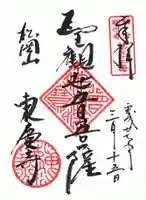 奉拝
平成廿七年
三月十五日
聖観世音菩薩
松岡山
東慶寺